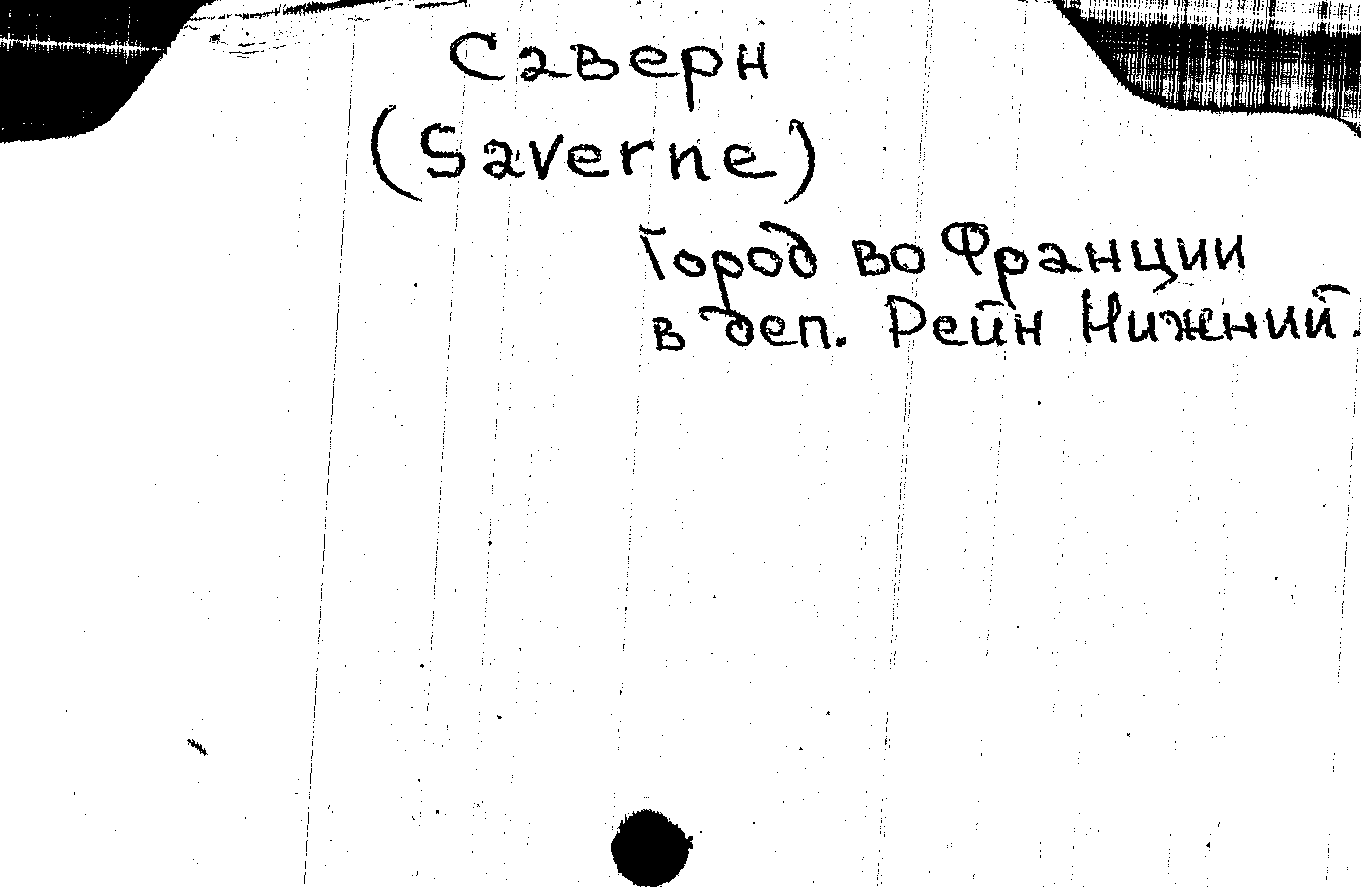 Саверн
(Saverne)
Город во Франции
в деп. Рейн Нижний.